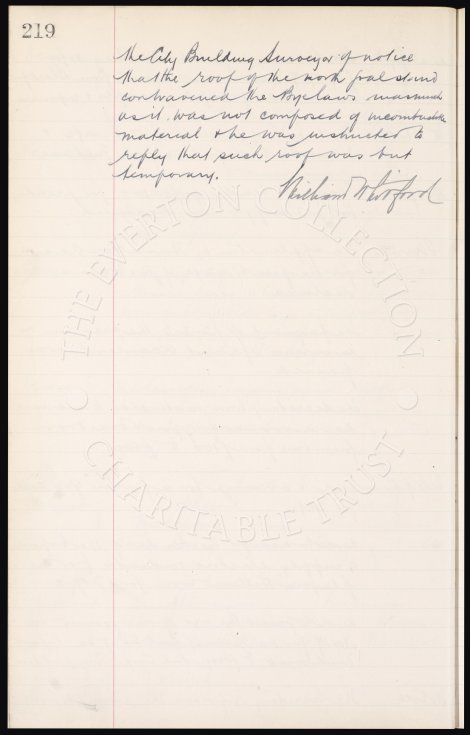 219
the City Building Surveyor of notice
that the roof of the north goal stand
contravened the Byelaws inasmuch
as it was not composed of incombustible
material & he was instructed to
reply that such roof was but
temporary.
William Whitford
THE EVERTON COLLECTION
CHARITABLE TRUST